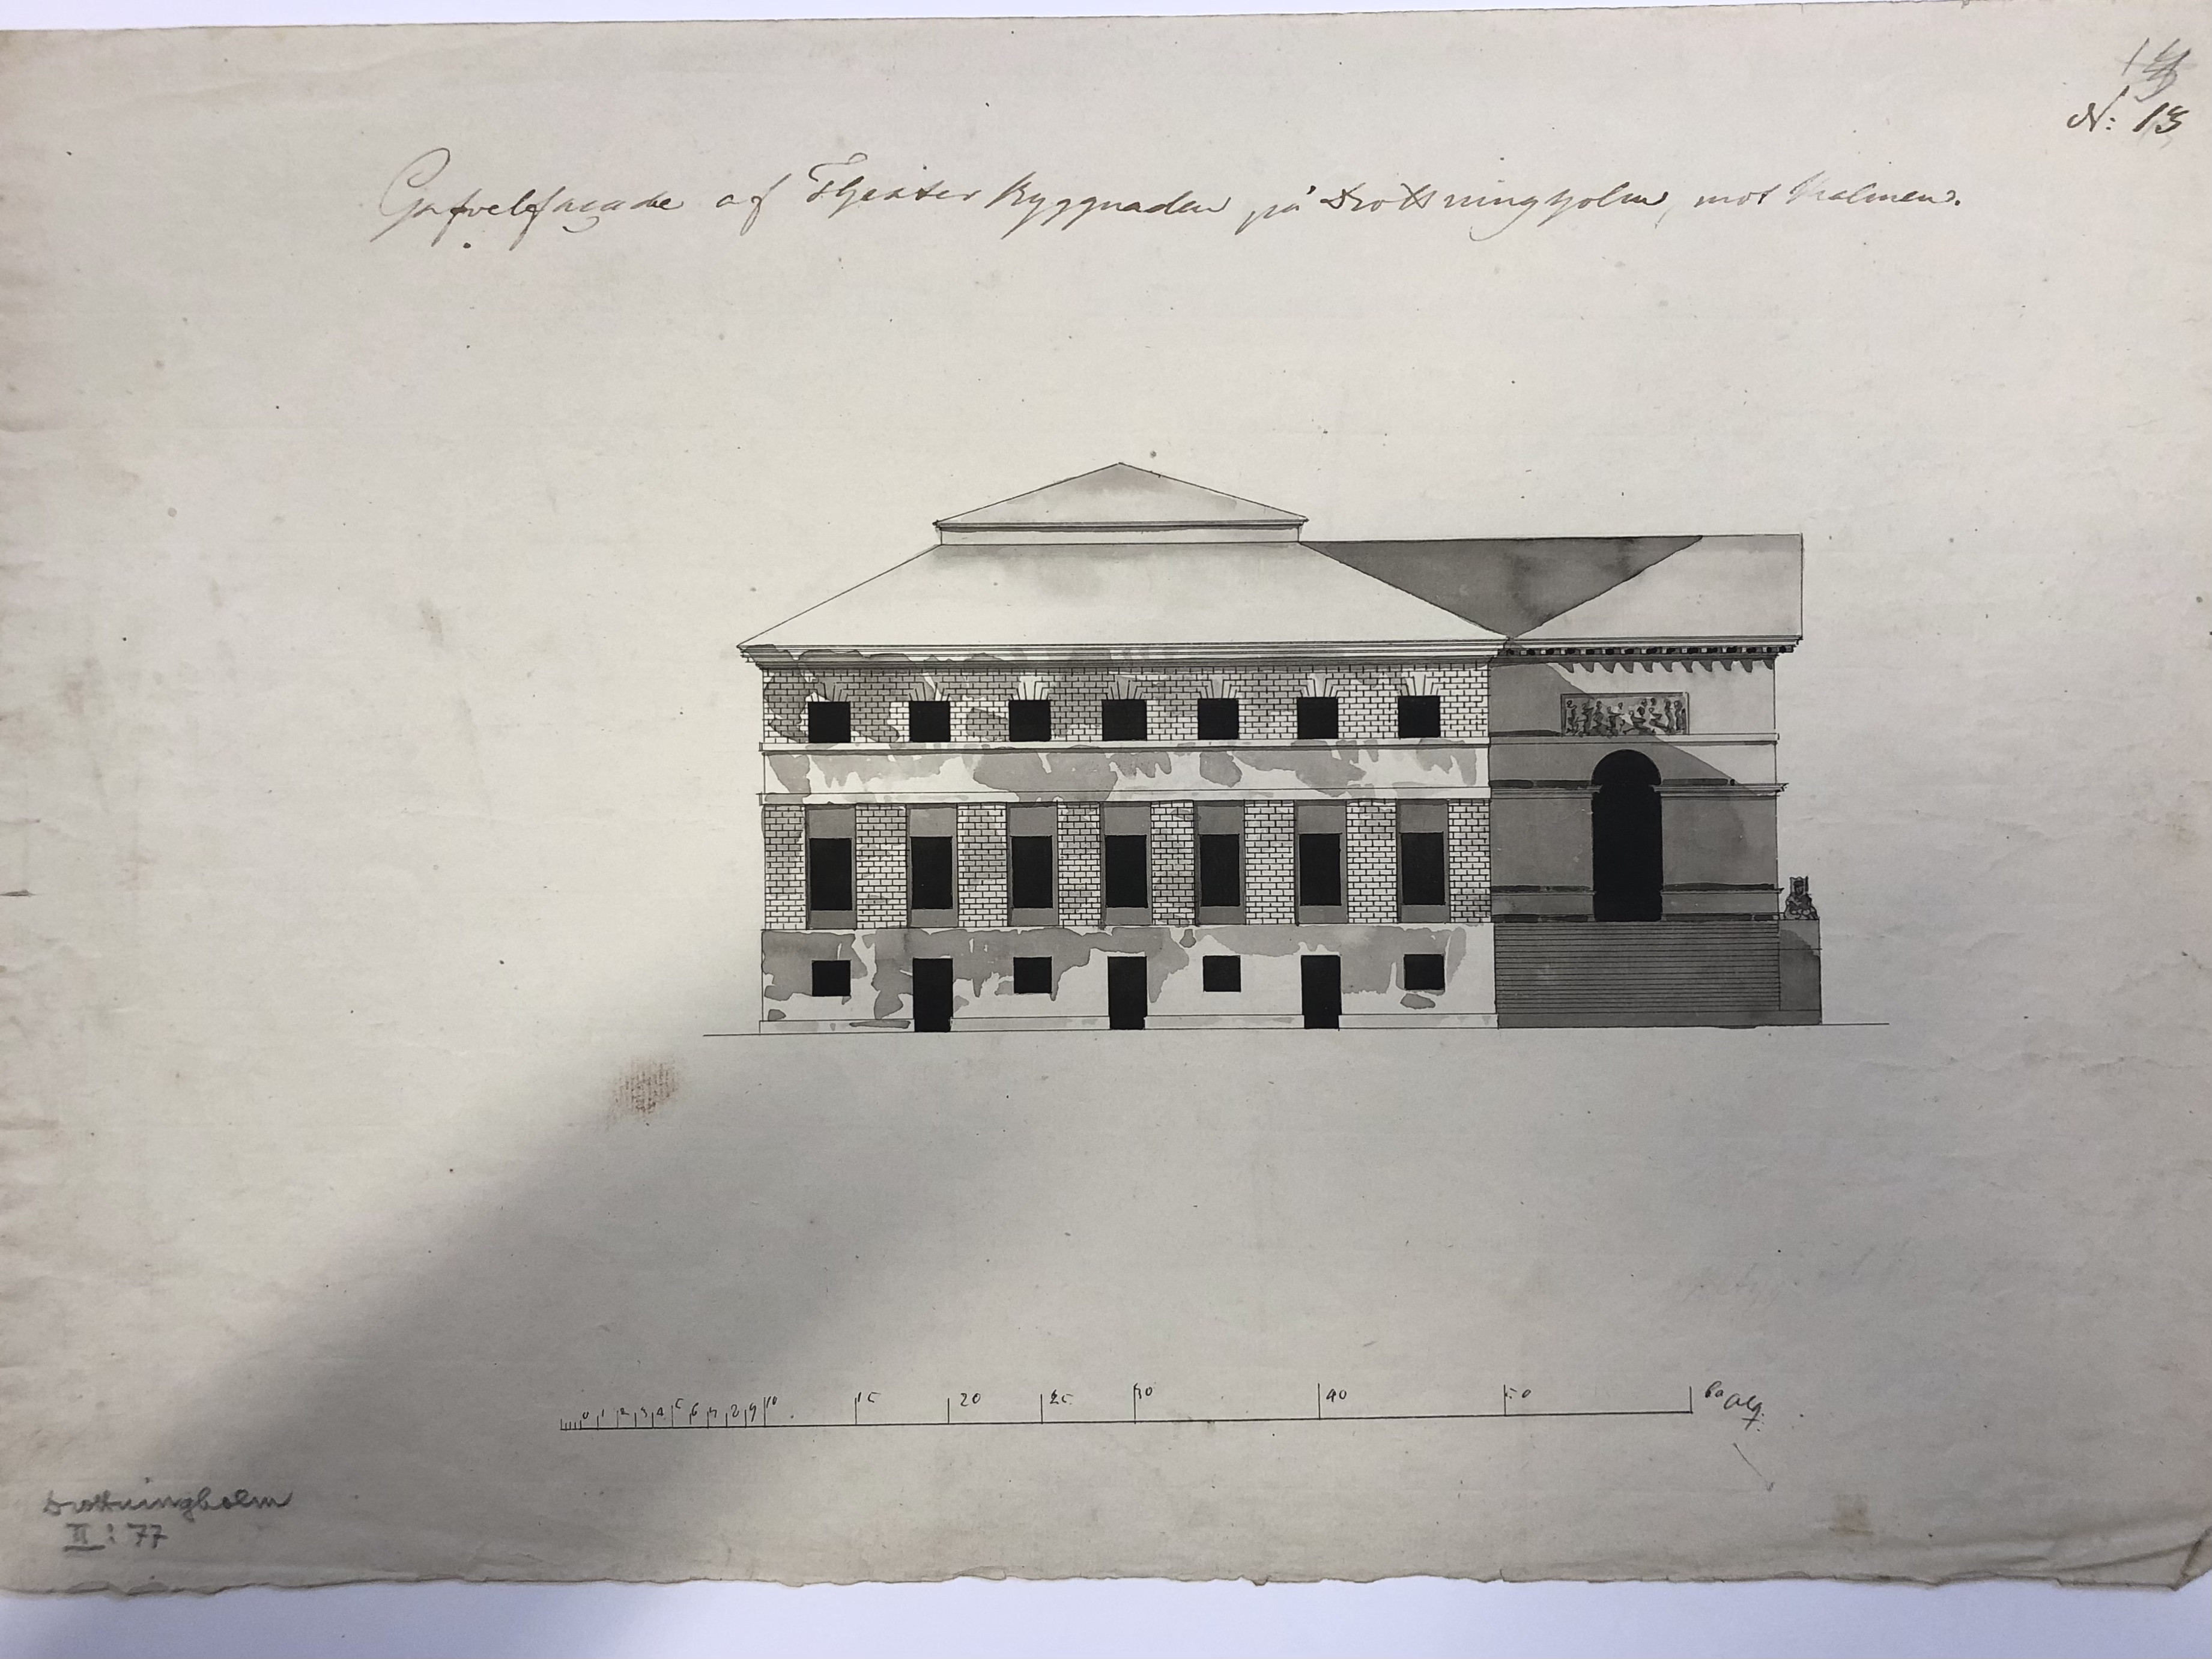 N: 13
Gafvelfaçade af Theater Byggnaden på Drottningholm, mot Malmen.
0 1 2 3 4 5 6 7 8 9 10 15 20 25 30 40 50 60 alg.
Drottningholm
II: 77